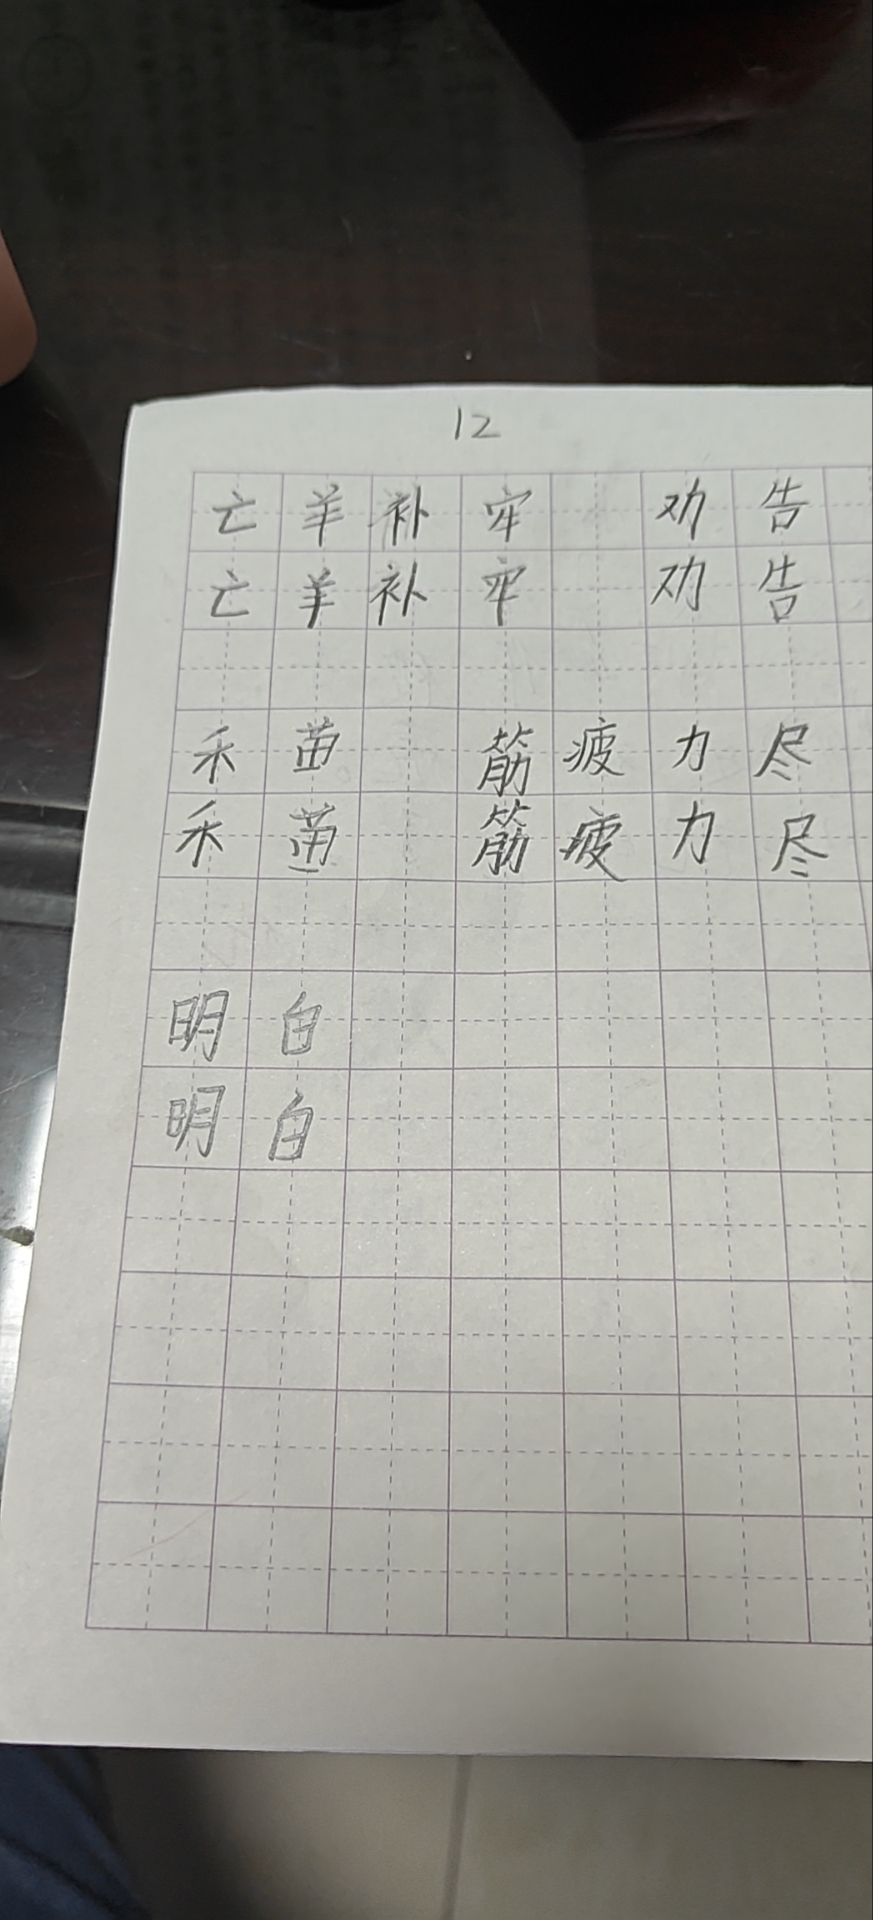 12
亡羊补牢 劝告
亡羊补牢 劝告
禾苗 筋疲力尽
禾苗 筋疲力尽
明白
明白